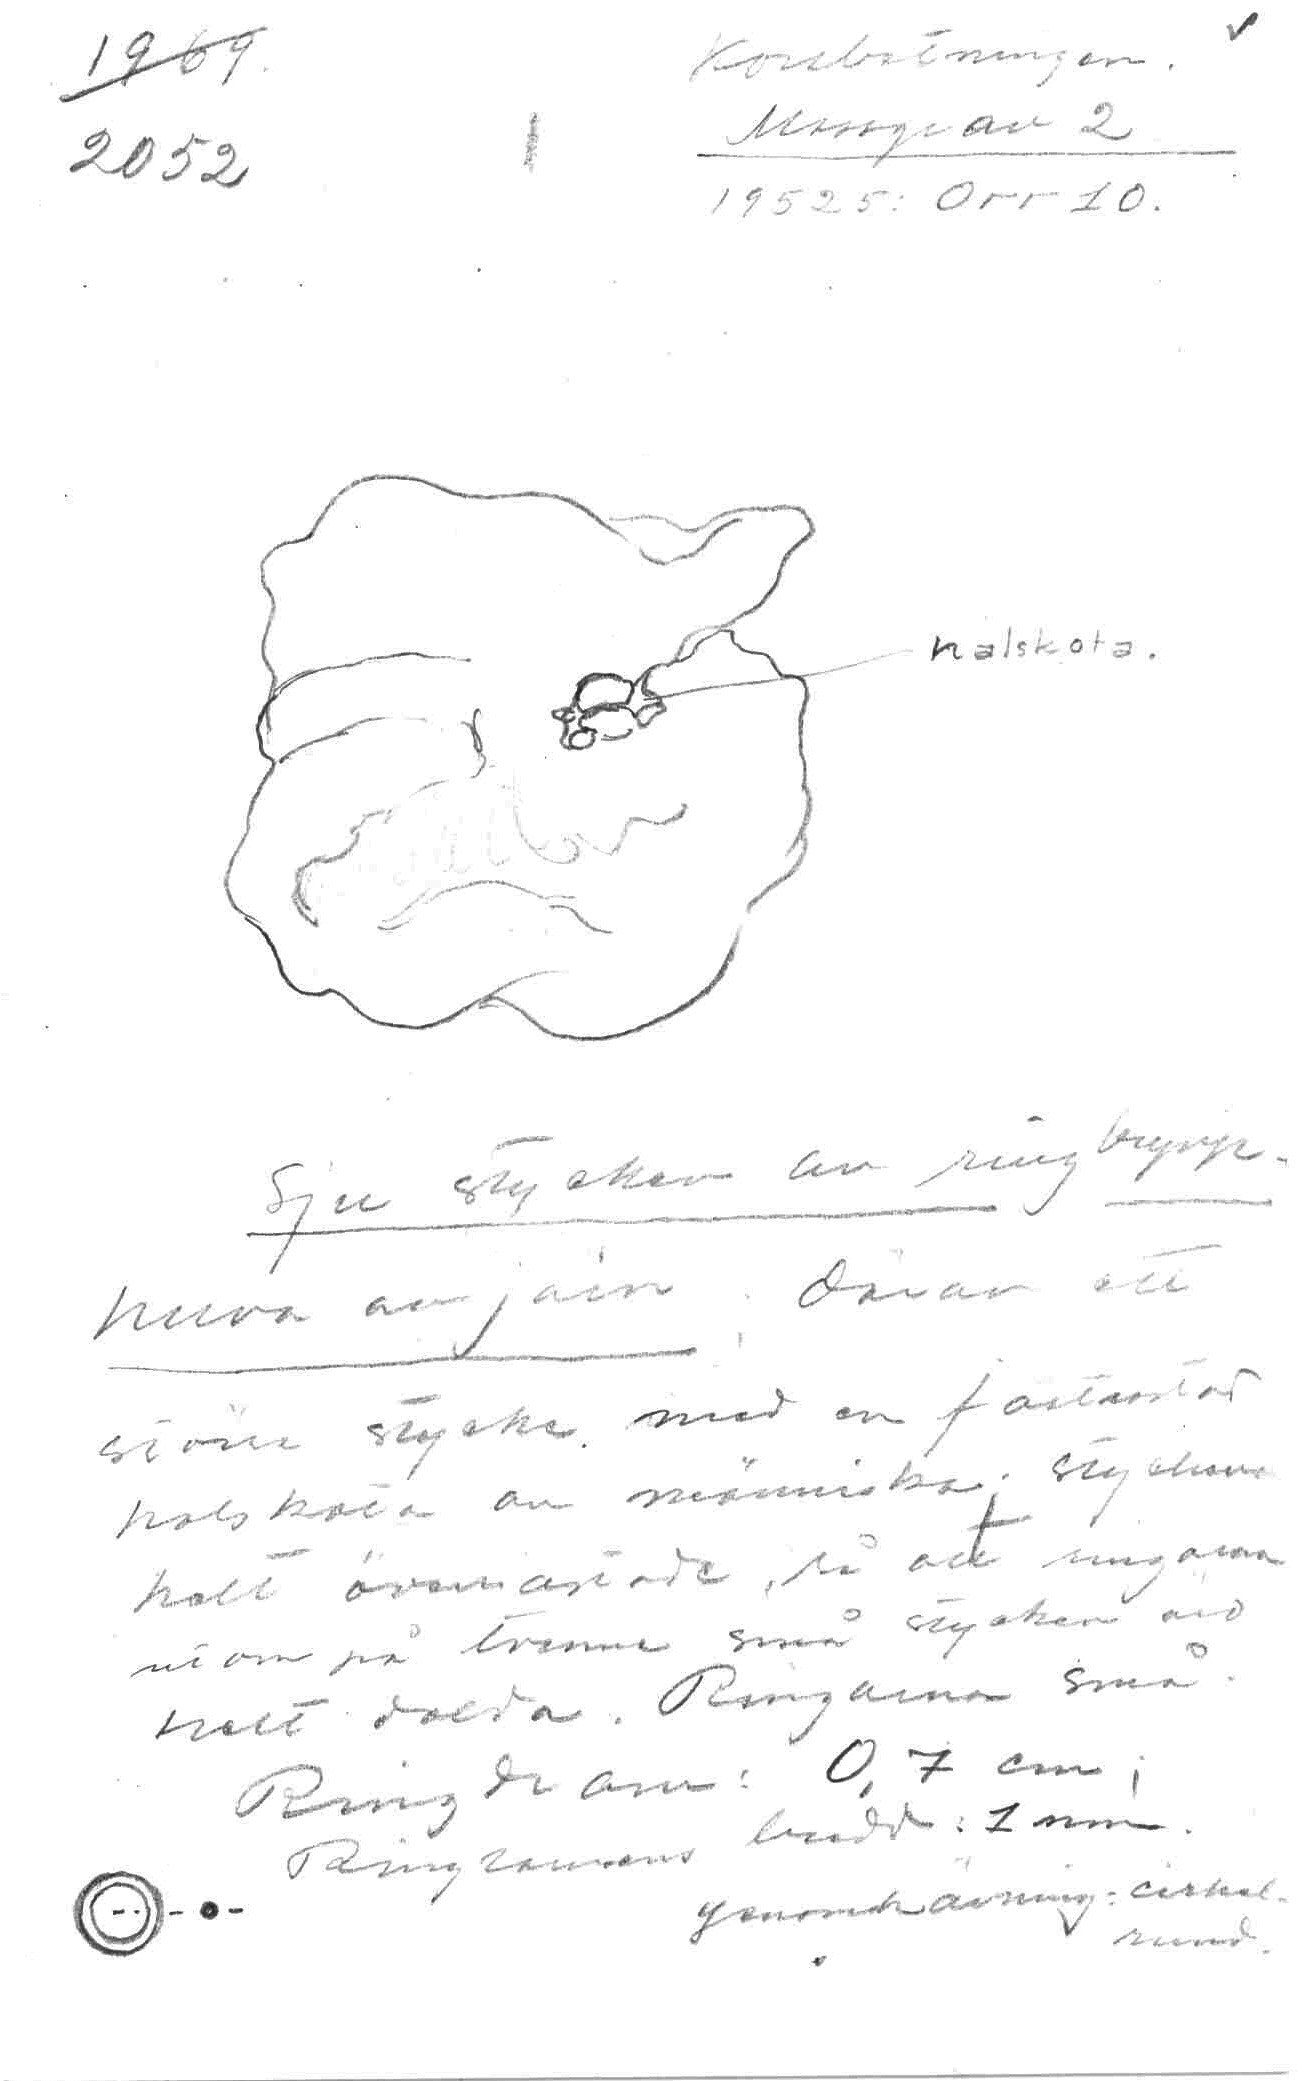 1969.
2052
Korsbetningen.
Massgrav 2
19525: Orr 10.
halskota.
Sju stycken av ringbrynje-
huva av järn. Därav ett
större stycke med en fastrostad
halskota av människa; styckena
helt överrostade, så att ringarna
utom på trenne små stycken äro
helt dolda. Ringarna små.
Ringdiam: 0,7 cm;
Ringramens bredd: 1 mm.
genomskärning: cirkel-
rund.